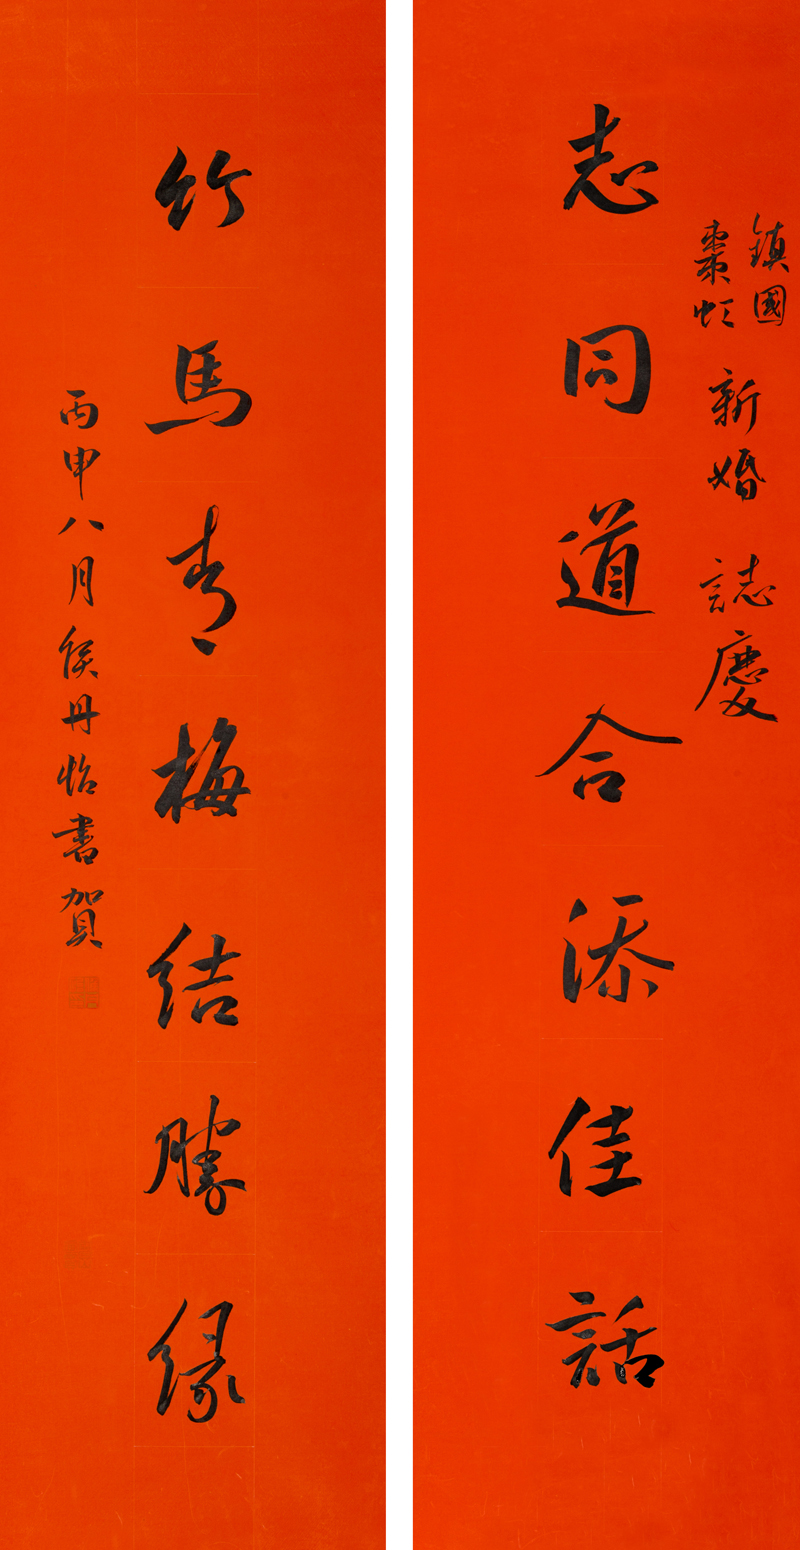 鎮國
棗虹
新婚 誌慶
志同道合添佳話
竹馬青梅結勝緣
丙申八月侯丹怡書賀